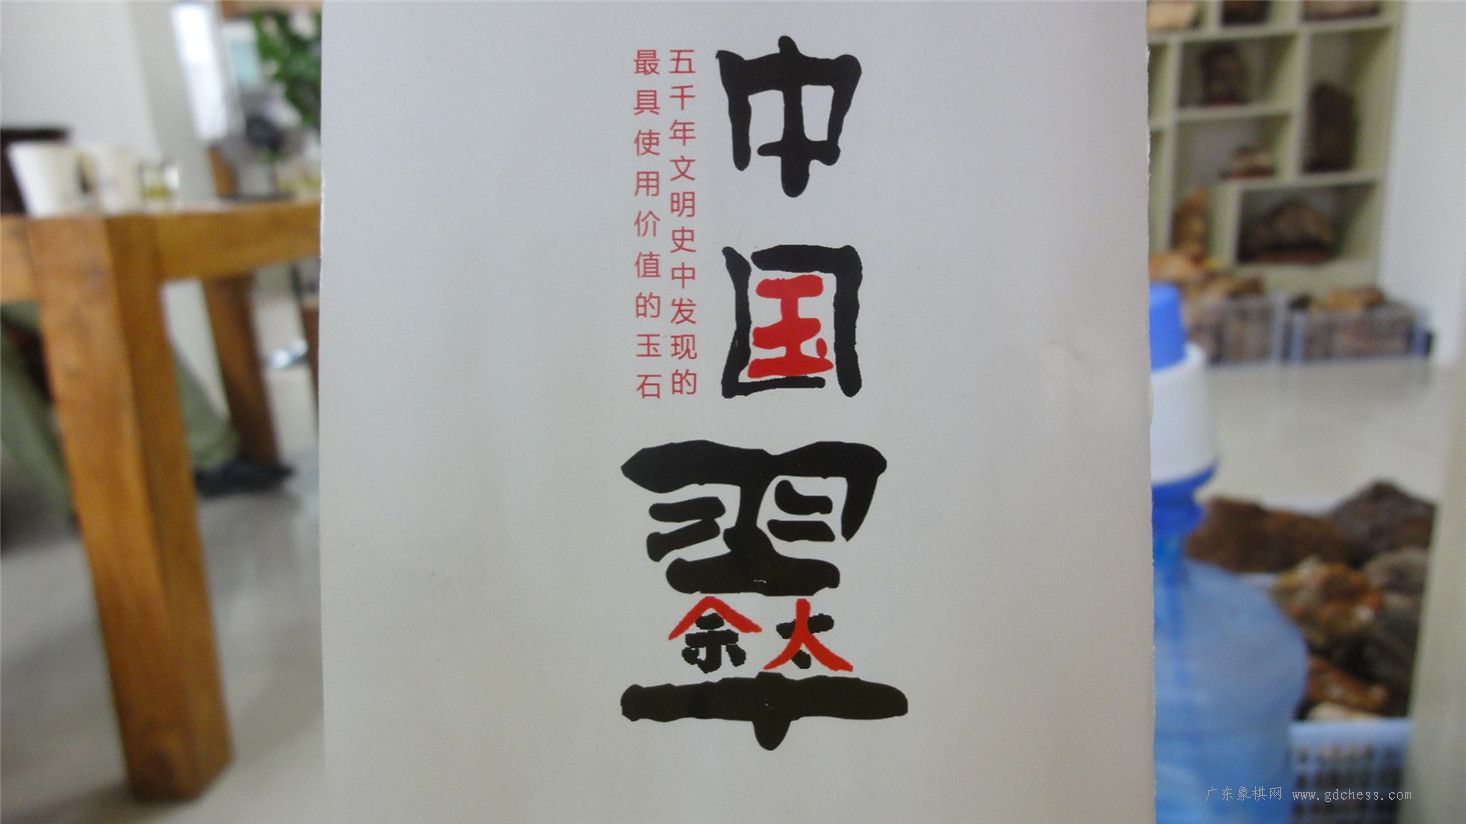 中国翠
五千年文明史中发现的
最具使用价值的玉石
广东象棋网 www.gdchess.com